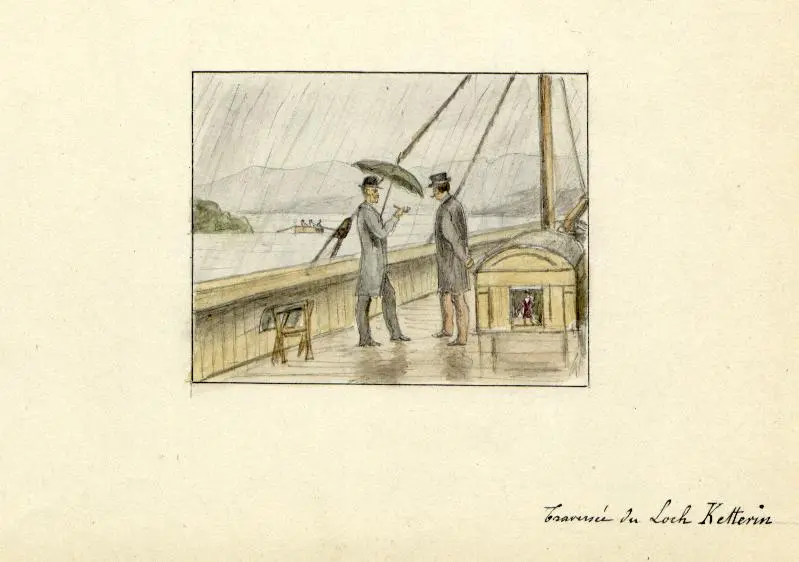 Traversée du Loch Ketterin